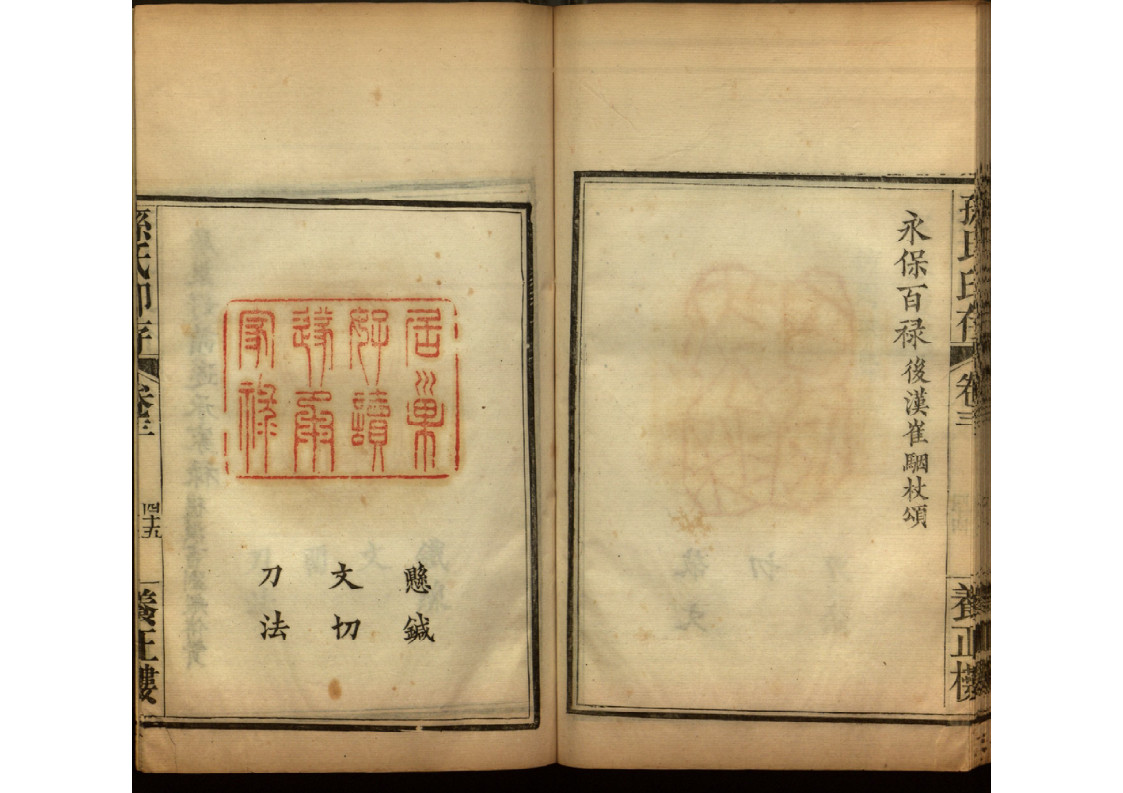 孫氏印存 卷三 養正樓
永保百禄 後漢崔駰杖頌
居巢
好讀
遂承
家祿
懸鍼
文切
刀法
孫氏印存 卷三 四十五 養正樓